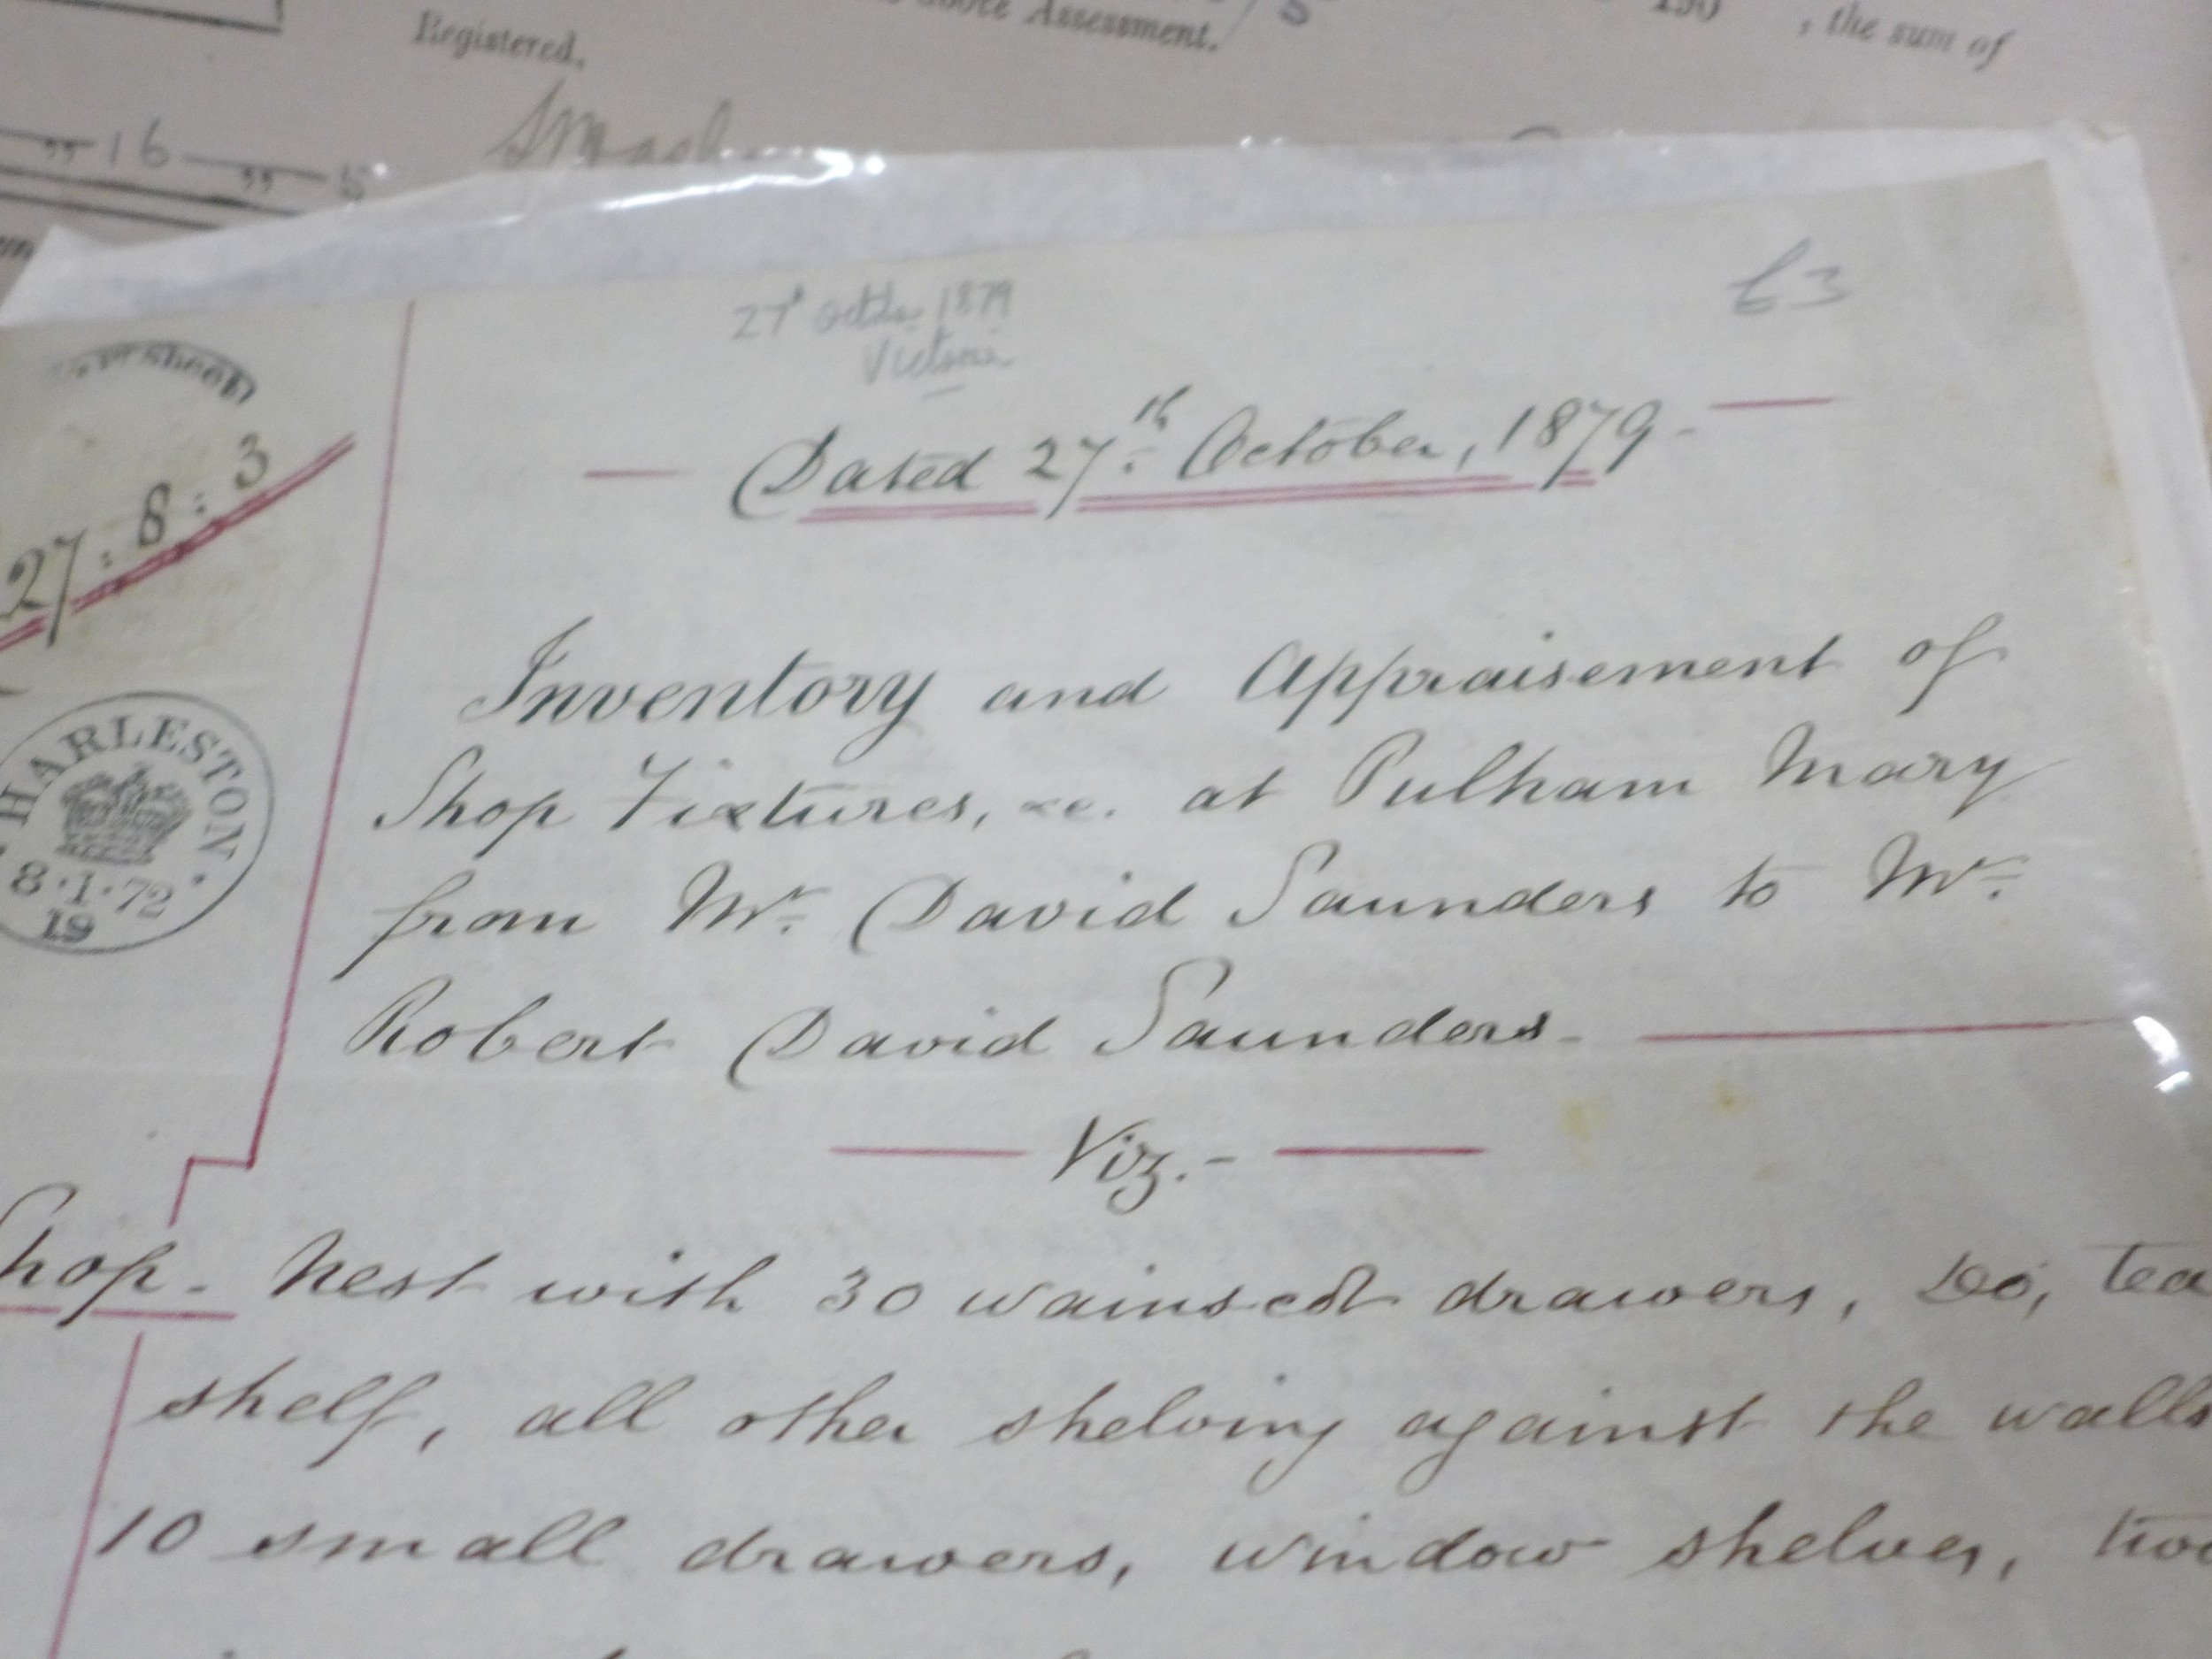 Registered.
above Assessment.
, the sum of
" 16 " 5
27 October 1879
Victoria
£3
Dated 27th October, 1879 -
27 : 8 : 3
Inventory and Appraisement of
Shop Fixtures, &c. at Pulham Mary
from Mr. David Saunders to Mr.
Robert David Saunders.
HARLESTON
8·1·72
19
Viz. -
hop. Nest with 30 wainscot drawers, Do, tea
shelf, all other shelving against the walls
10 small drawers, window shelves, two